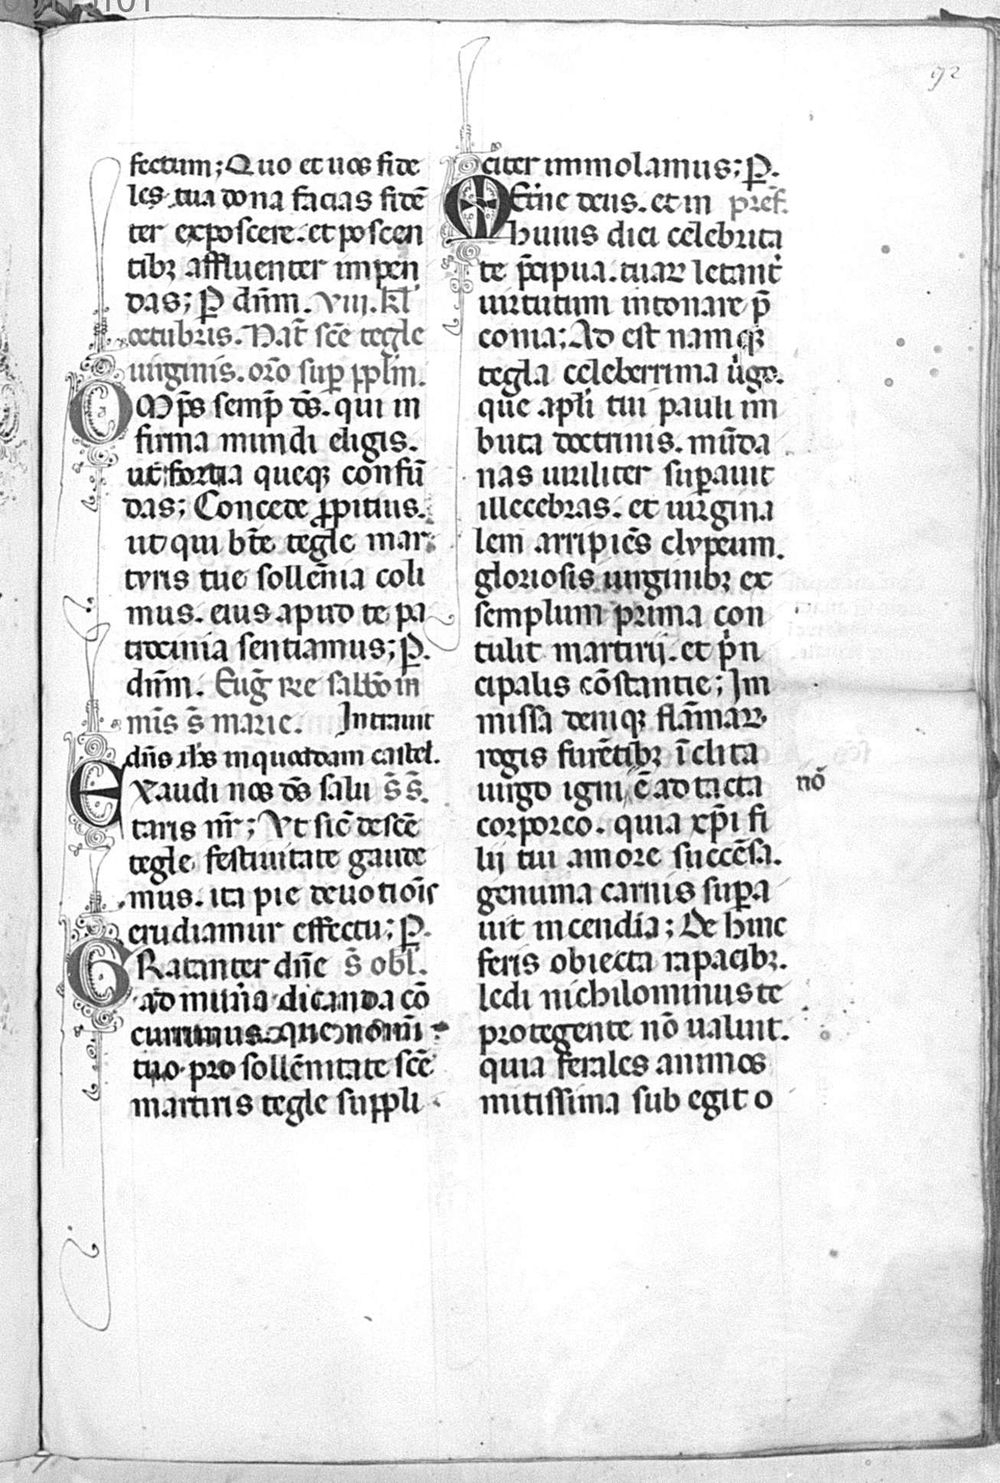 92
fectum; Quo et uos fide
les tua dona facias fidē
ter exposcere. et poscen
tibꝫ affluenter impen
das; P̲ dn̄m. VIII. kl̄
octubris. Nat̄ sc̄e tegle
uirginis. or̄o sup̲ pp̄lm̄.
OMp̄s semp̲ ds̄. qui in
firma mundi eligis.
ut fortia queqꝫ confū
das; Concede ꝓpitius.
ut qui bt̄e tegle mar
tyris tue sollēnia coli
mus. eius apud te pa
trocinia sentiamus; P̲.
dn̄m.
mīs s̄ marie. Intrauit
dn̄s ih̄s in quoddam castel.
EXaudi nos ds̄ salu s̄ s̄.
taris nr̄; Vt sic̄ de sc̄e
tegle festiuitate gaude
mus. ita pie deuotiōis
erudiamur effectu; P̲.
GRatanter dn̄e s̄ obl̄.
ad mun̄a dicanda cō
currimus. que nomīi
tuo pro sollēnitate sc̄e
martiris tegle suppli
citer immolamus; P̲.
Et̄ne deus. et in pref̄.
huius diei celebrita
te p̄cipua. tuaꝝ letant̄
uirtutum intonare p̄
conia; Ad est namqꝫ
tegla celeberrima uigo.
que apl̄i tui pauli im
buta doctrinis. mūda
nas uiriliter sup̲auit
illecebras. et uirgina
lem arripiēs clypeum.
gloriosis uirginibꝫ ex
semplum prima con
tulit martirii. et prin
cipalis cōstantie; Im
missa deniqꝫ flāmaꝝ
rogis furētibꝫ īclita
uirgo igni ē ad tacta nō
corporeo. quia xp̄i fi
lij tui amore succēsa.
genuina carnis sup̲a
uit incendia; De hinc
feris obiecta rapacibꝫ.
ledi nichilominus te
protegente nō ualuit.
quia ferales animos
mitissima sub egit o